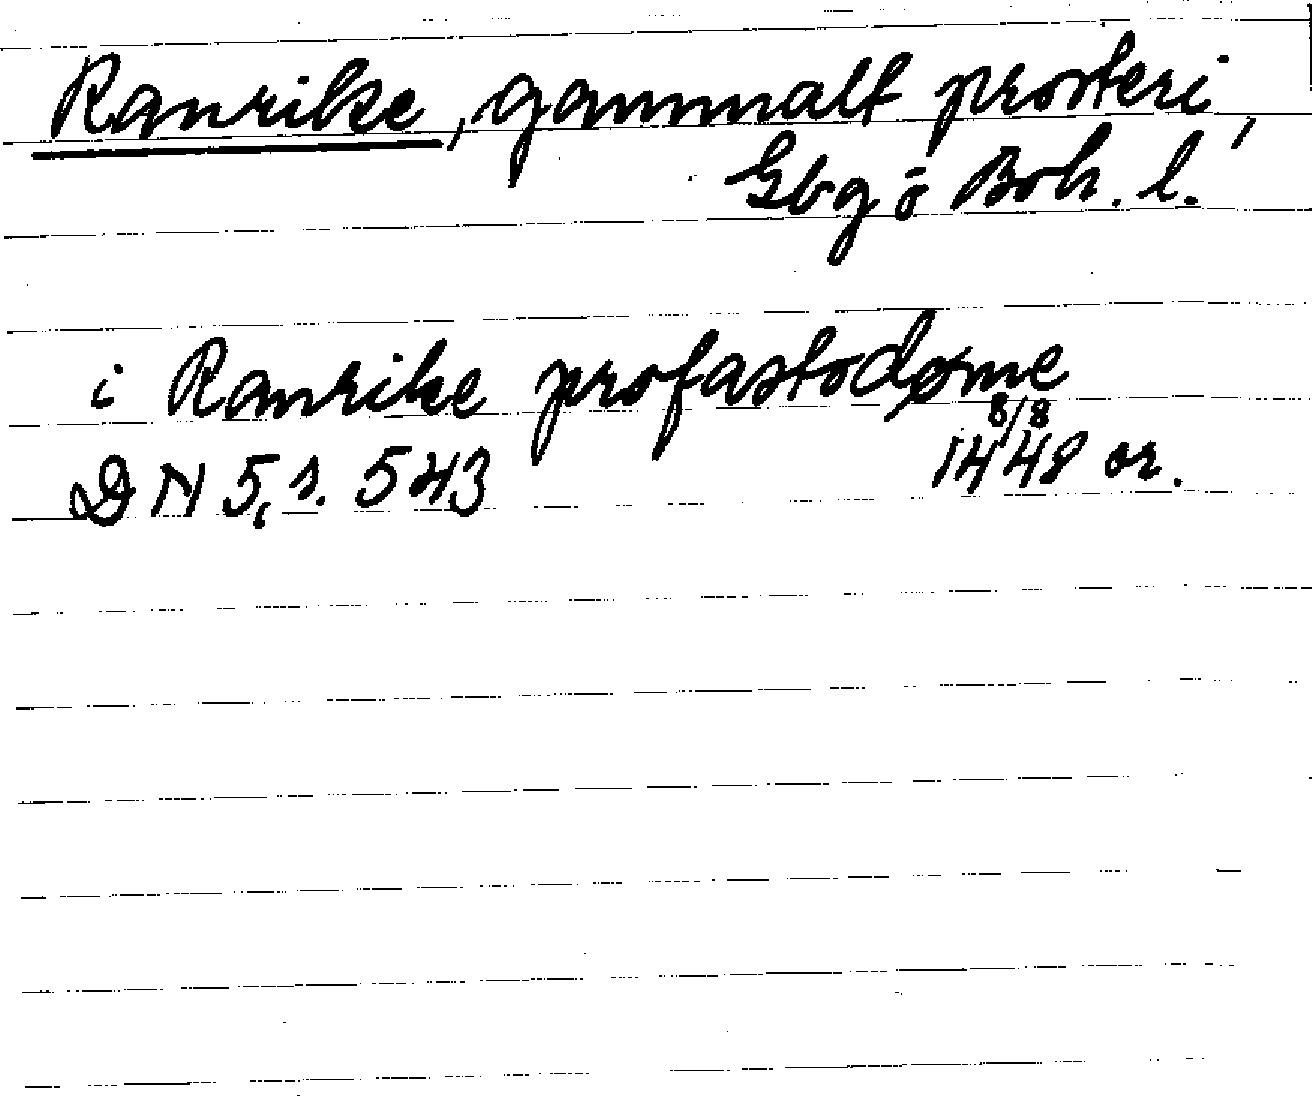 Ranrike, gammalt prosteri,
Gbg o Boh. l.
i Ranrike profastodøme
8/8
DN 5, s. 543 1448 or.